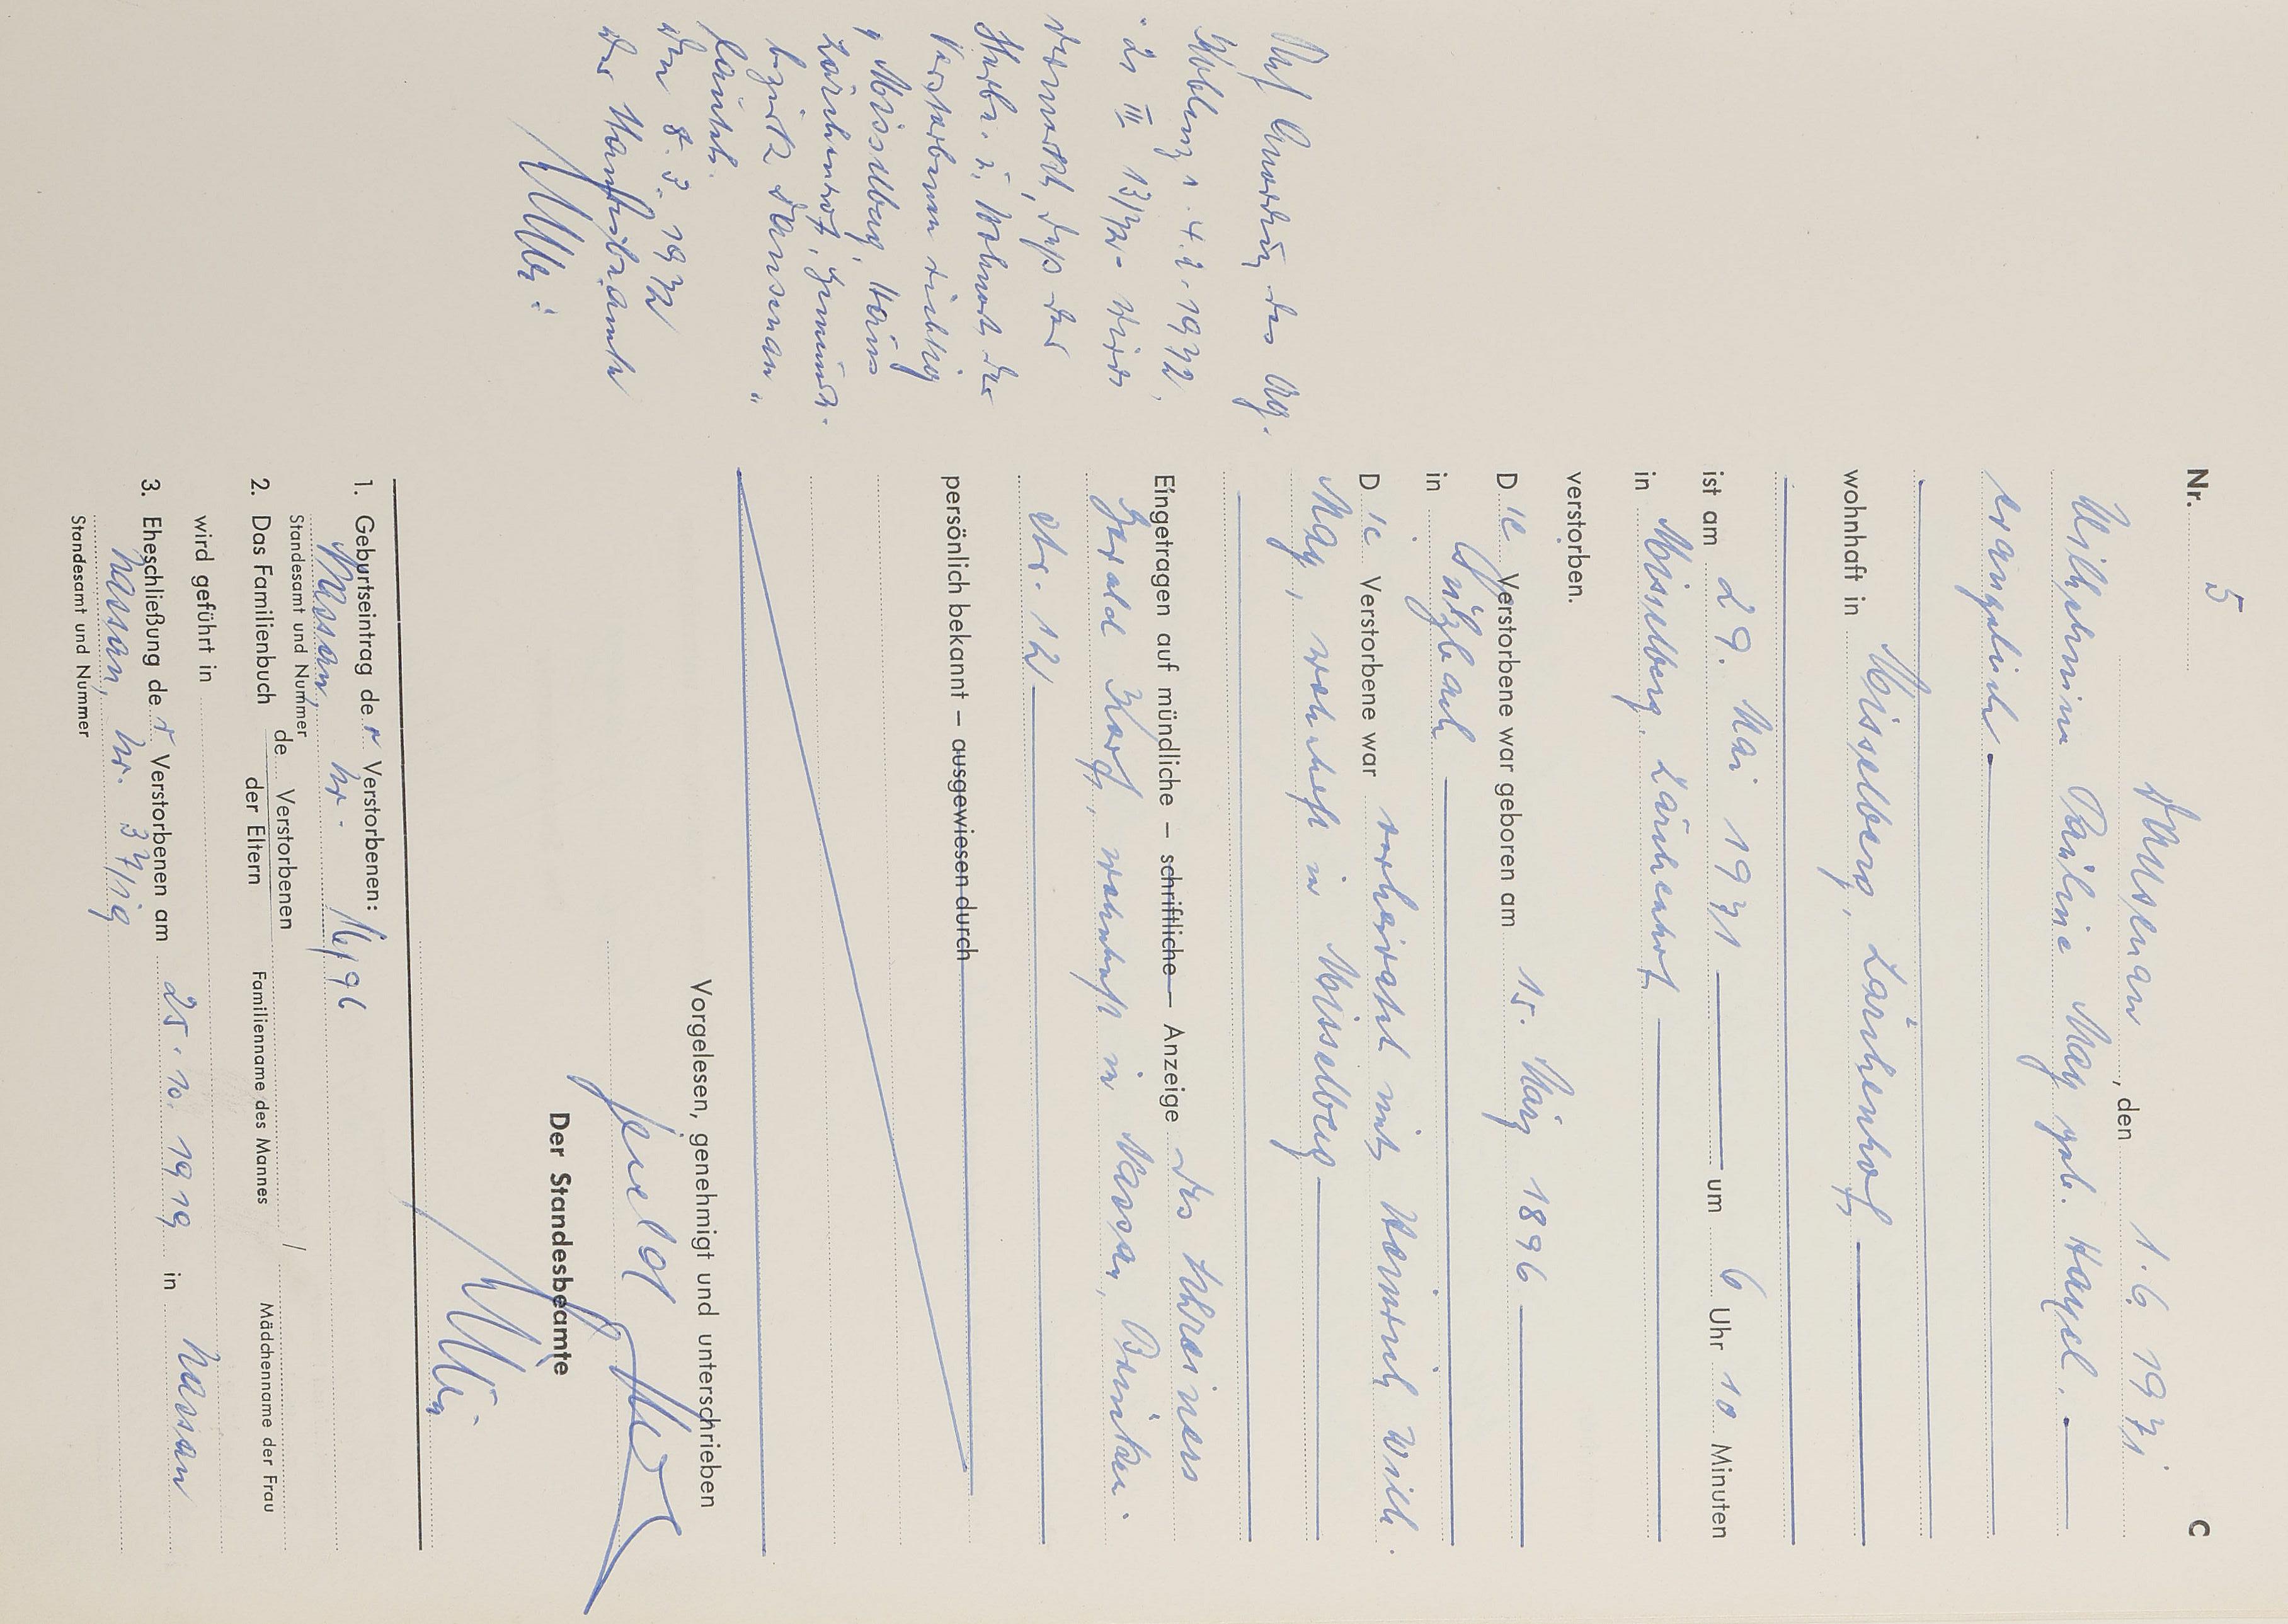 Nr. 5
C
Dausenau, den 1.6.1971
Wilhelmine Pauline May geb. Hagel.
evangelisch
wohnhaft in Misselberg, Lärchenhof
ist am 29. Mai 1971 um 6 Uhr 10 Minuten
in Misselberg, Lärchenhof
verstorben.
Die Verstorbene war geboren am 15. März 1896
in Sulzbach
Die Verstorbene war verheiratet mit Heinrich Wilh.
May, wohnhaft in Misselberg
Eingetragen auf mündliche – schriftliche – Anzeige des Schreiners
Gerald, wohnhaft in Nassau,
str. 12
persönlich bekannt – ausgewiesen durch
Vorgelesen, genehmigt und unterschrieben
Gerald
Der Standesbeamte
1. Geburtseintrag der Verstorbenen:
Nassau, Nr.
Standesamt und Nummer
2. Das Familienbuch de Verstorbenen
der Eltern
Familienname des Mannes / Mädchenname der Frau
wird geführt in
3. Eheschließung der Verstorbenen am 25.10.1919 in Nassau
Nassau, Nr. 37/19
Standesamt und Nummer
Auf Anordnung des Ag.
Koblenz v. 4.2.1972,
III 13/72 - wird
vermerkt, daß der
Sterbe- u. Wohnort der
Verstorbenen richtig
"Misselberg, Haus
Lärchenhof, Gemeinde-
bezirk Dausenau"
lautet.
den 8.3.1972
der Standesbeamte